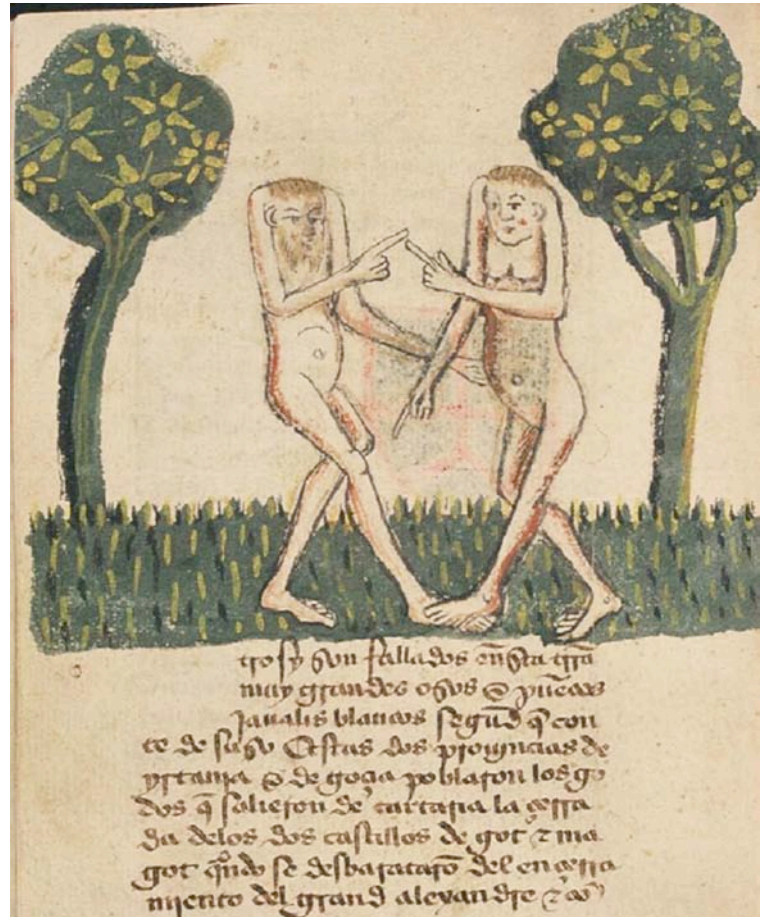 tro sy son fallados en esta trra
muy grandes osos & pueros
jaualis blancos segud q con
te de suso Estas dos prouinçias de
yrtania & de goçia poblaron los go
dos q salieron de tartaria la çerra
da delos dos castillos de got & ma
got qndo se desbarataro del en çerra
miento del grand alexandre & co